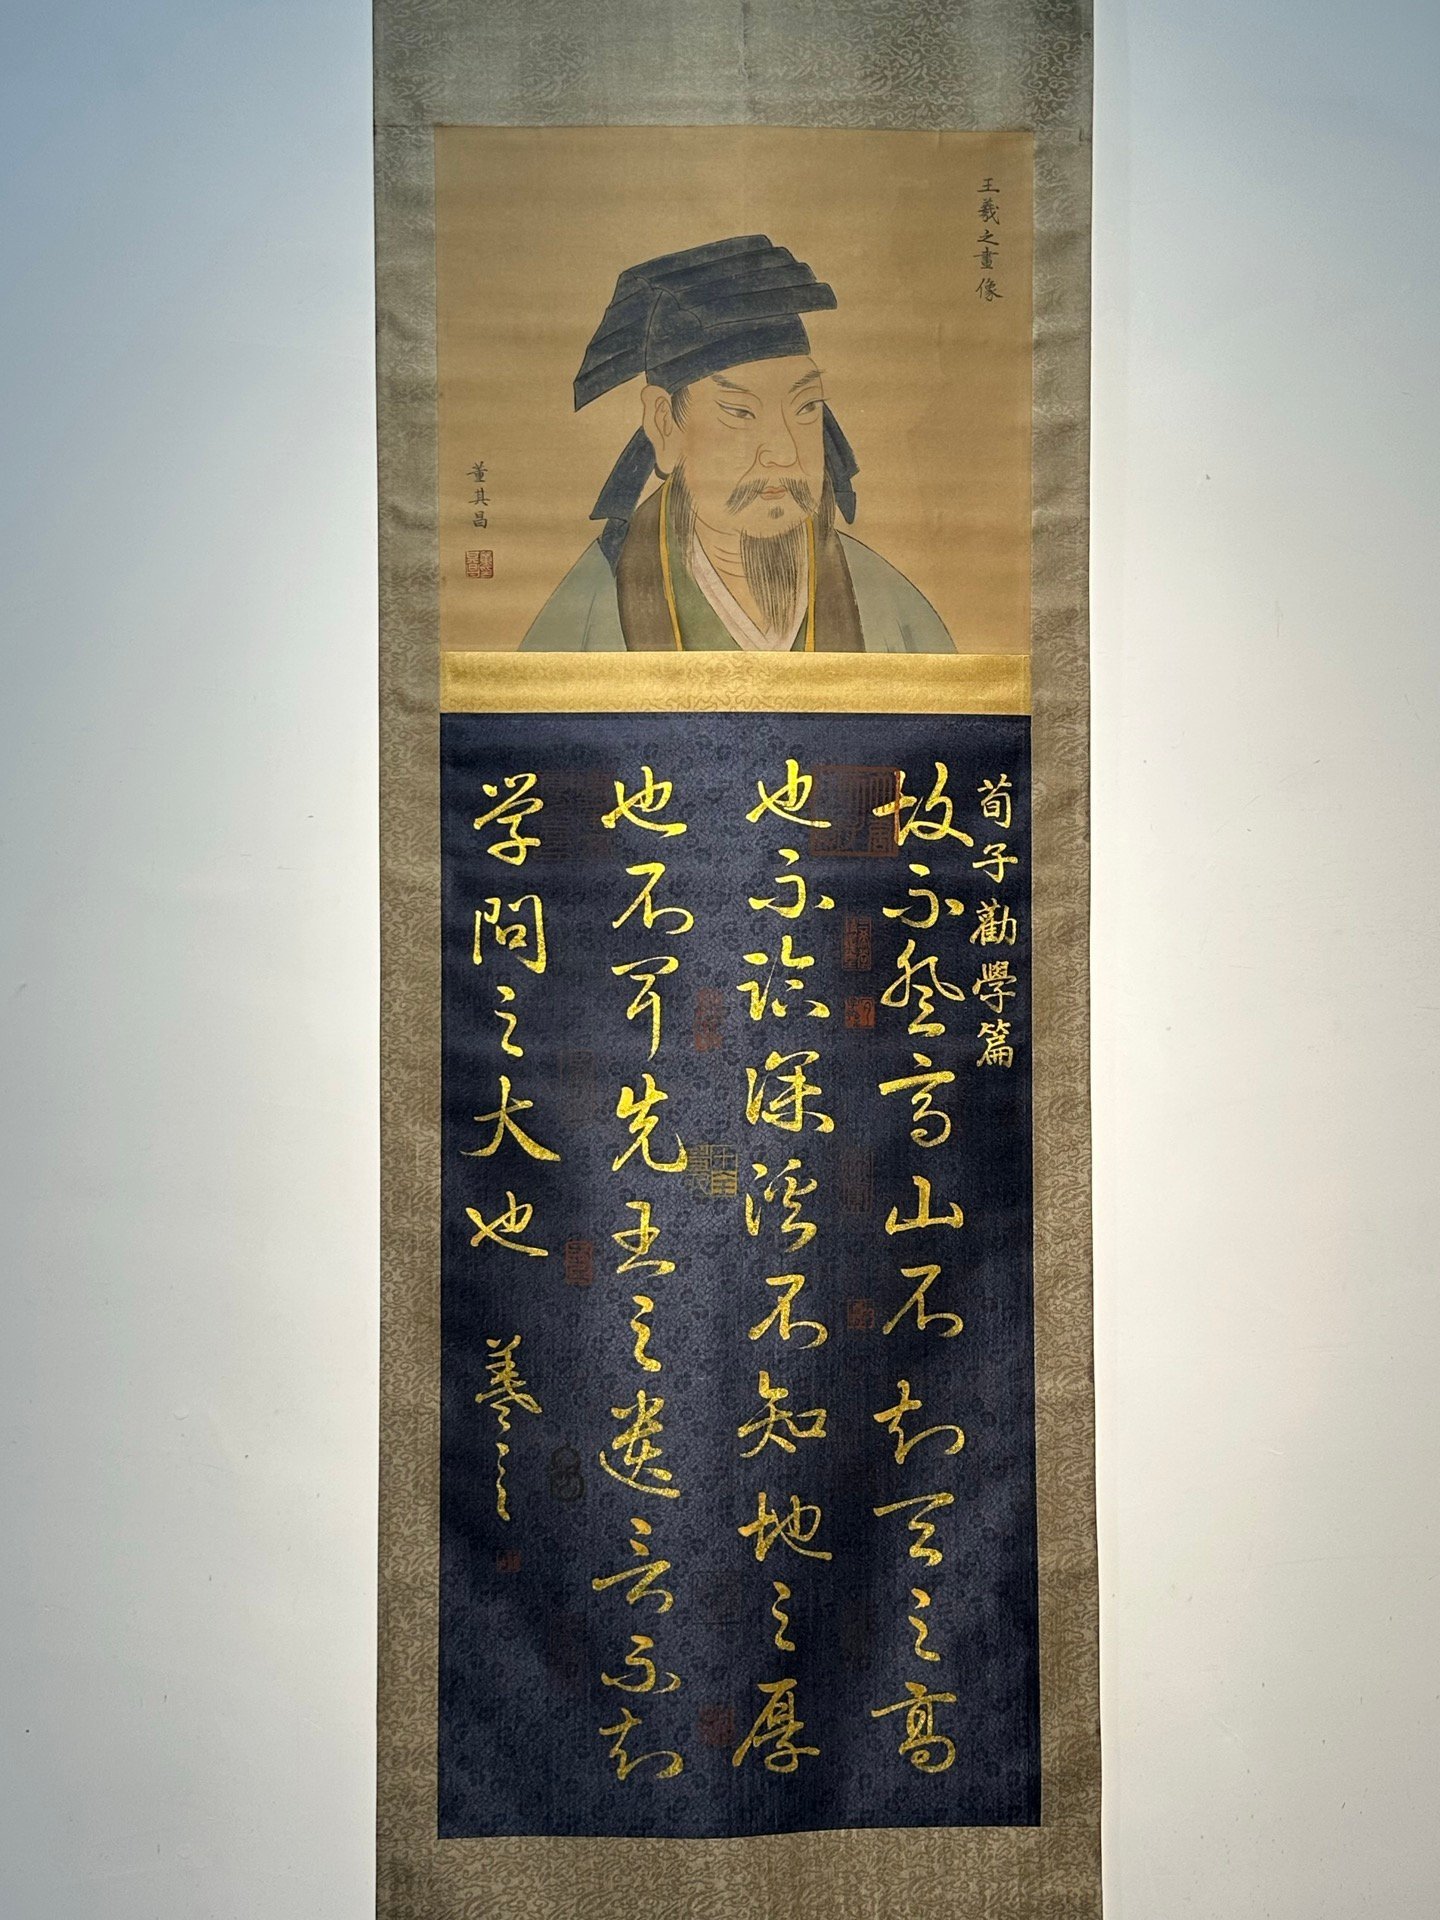 王羲之畫像
董其昌
荀子勸學篇
故不登高山不知天之高
也不臨深溪不知地之厚
也不聞先王之遺言不知
学問之大也
羲之